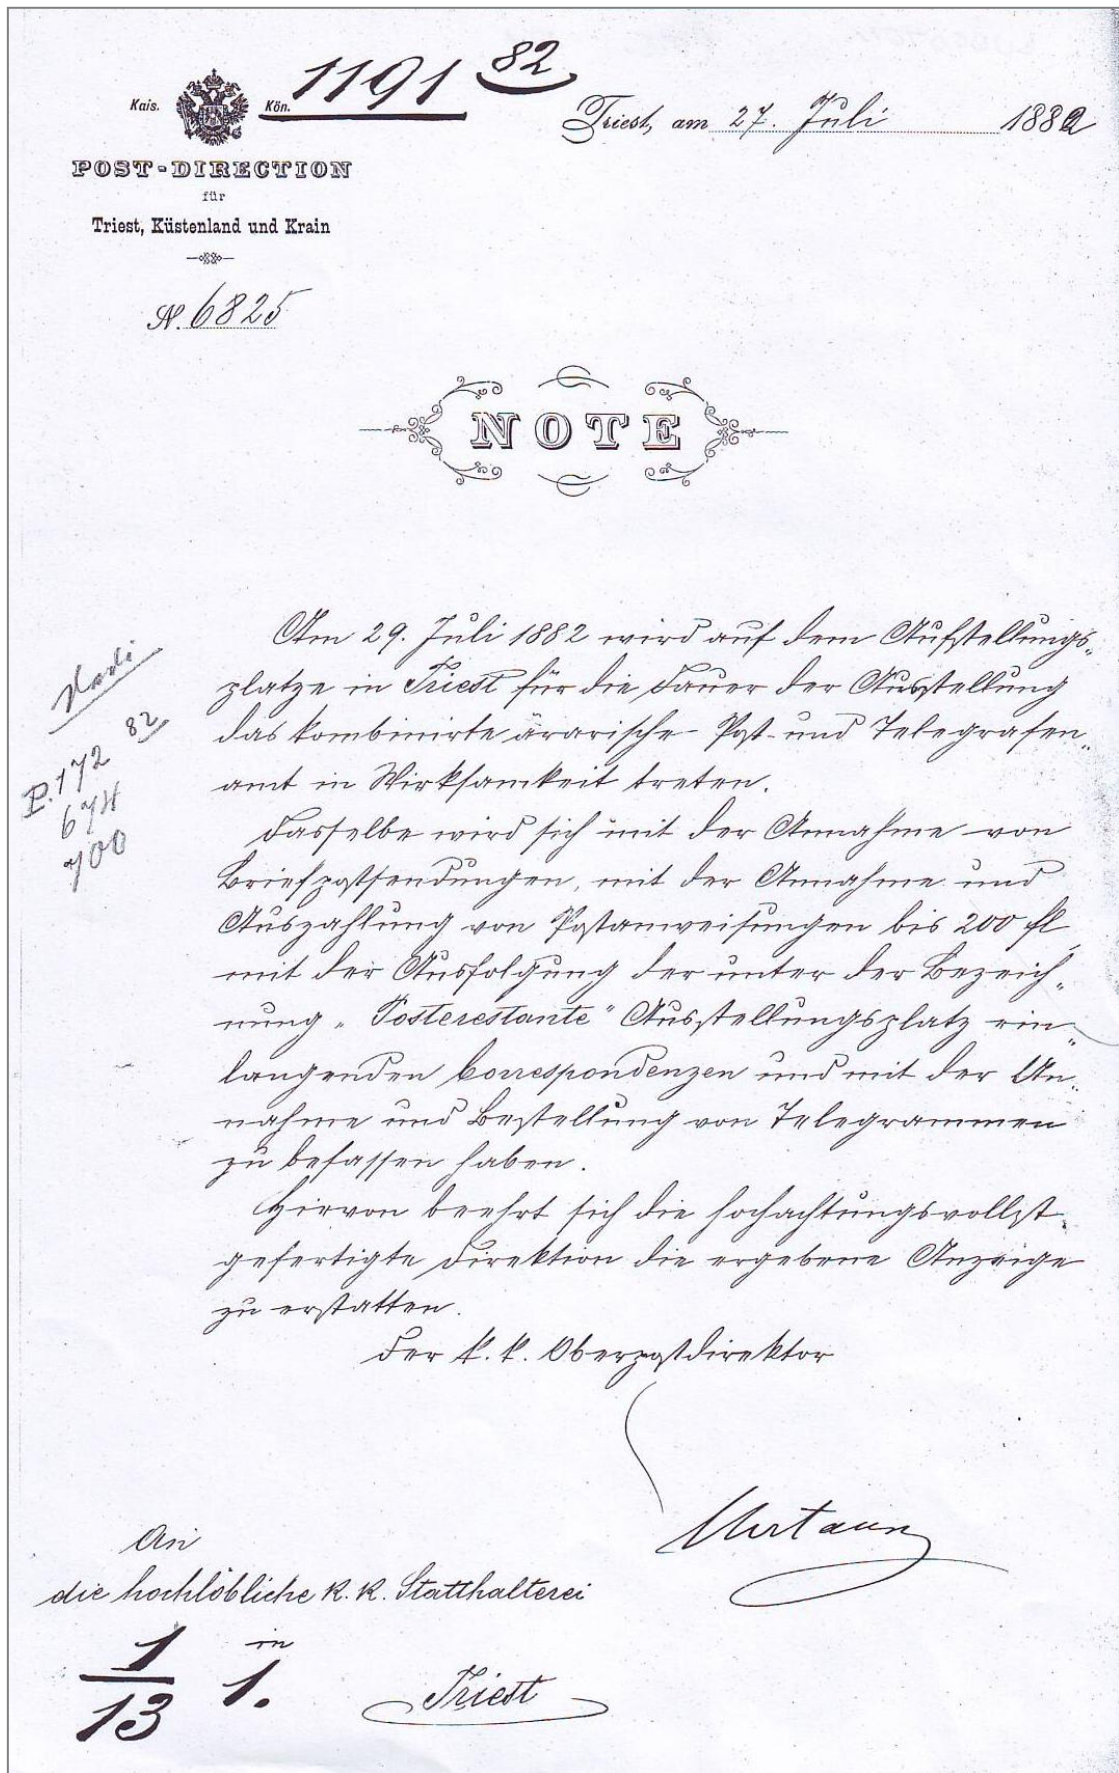 1191 82
Kais. Kön.
Triest, am 27. Juli 1882
POST-DIRECTION
für
Triest, Küstenland und Krain
N. 6825
NOTE
Am 29. Juli 1882 wird auf dem Aufstellungs„
platze in Triest für die Dauer der Ausstellung
das kombinirte ärarische Post- und Telegrafen„
amt in Wirksamkeit treten.
Dasselbe wird sich mit der Annahme von
Briefpostsendungen, mit der Annahme und
Auszahlung von Postanweisungen bis 200 fl,
mit der Ausfolgung der unter der Bezeich„
nung „Posterestante" Ausstellungsplatz ein„
langenden Correspondenzen und mit der An„
nahme und Bestellung von Telegrammen
zu befassen haben.
Hievon beehrt sich die hochachtungsvollst
gefertigte Direktion die ergebene Anzeige
zu erstatten.
Der k. k. Oberpostdirektor
P. 172 82
674
700
An
die hochlöbliche k. k. Statthalterei
in
Triest
1/13 1.